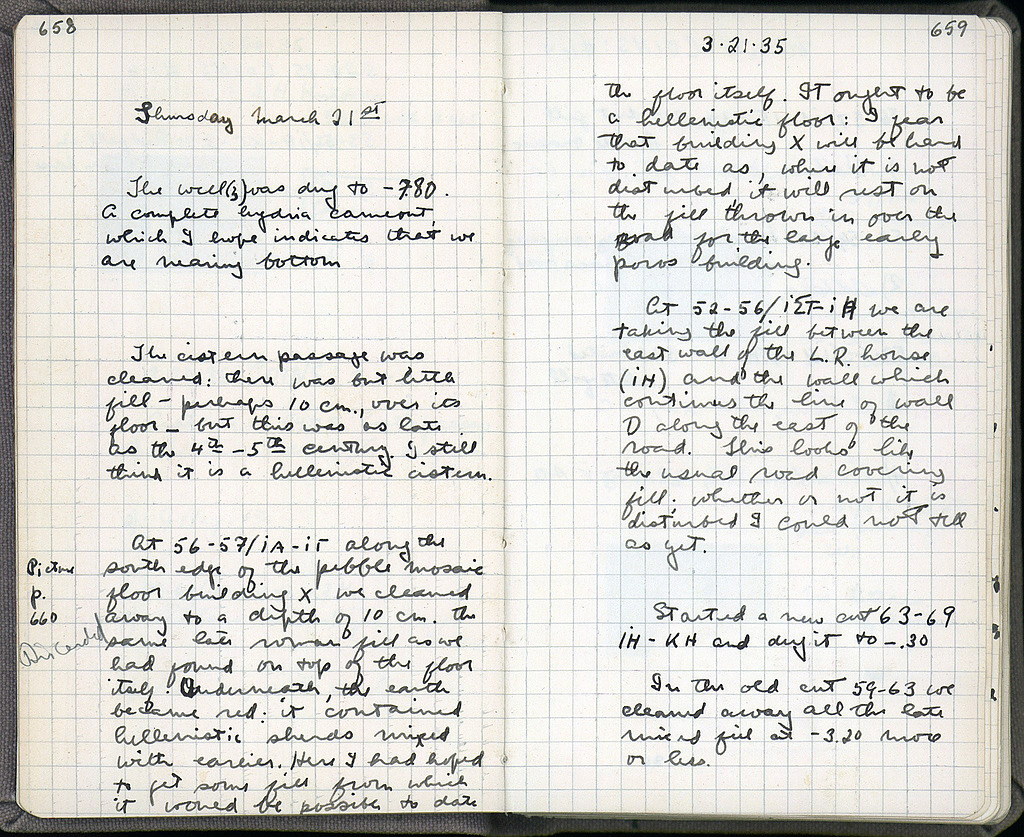 658
Thursday March 21st
The well (3) was dug to -780.
A complete hydria came out,
which I hope indicates that we
are nearing bottom
The cistern passage was
cleaned: there was but little
fill - perhaps 10 cm., over its
floor - but this was as late
as the 4th - 5th century. I still
think it is a hellenistic cistern.
At 56-57/ΙΑ-ΙΓ along the
south edge of the pebble mosaic
Picture
p.
660
Discarded
floor building X we cleaned
away to a depth of 10 cm. the
same late roman fill as we
had found on top of the floor
itself. Underneath, the earth
became red: it contained
hellenistic sherds mixed
with earlier. Here I had hoped
to get some fill from which
it would be possible to date
659
3·21·35
the floor itself. It ought to be
a hellenistic floor: I fear
that building X will be hard
to date as, where it is not
disturbed it will rest on
the fill thrown in over the
road for the large early
poros building.
At 52-56/ΙΣΤ-ΙΗ we are
taking the fill between the
east wall of the L.R. house
(ΙΗ) and the wall which
continues the line of wall
D along the east of the
road. This looks like
the usual road covering
fill: whether or not it is
disturbed I could not tell
as yet.
Started a new cut 63-69
ΙΗ-ΚΗ and dug it to -.30
In the old cut 59-63 we
cleaned away all the late
mixed fill at -3.20 more
or less.